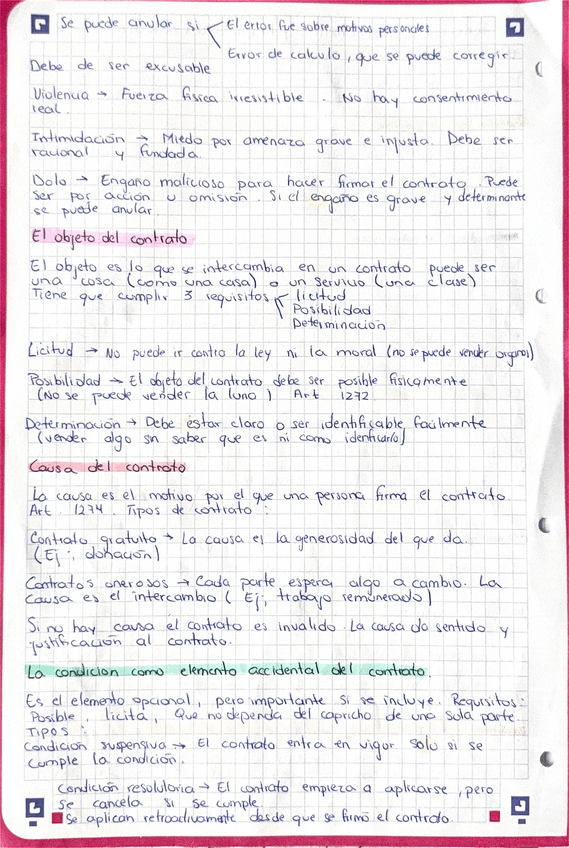 Se puede anular si El error fue sobre motivos personales
Error de calculo, que se puede corregir.
Debe de ser excusable
Violencia → Fuerza física irresistible. No hay consentimiento
real.
Intimidación → Miedo por amenaza grave e injusta. Debe ser
racional y fundada.
Dolo → Engaño malicioso para hacer firmar el contrato. Puede
ser por acción u omisión. Si el engaño es grave y determinante
se puede anular.
El objeto del contrato
El objeto es lo que se intercambia en un contrato puede ser
una cosa (como una casa) o un servicio (una clase)
Tiene que cumplir 3 requisitos licitud
Posibilidad
Determinación
Licitud → No puede ir contra la ley ni la moral (no se puede vender organos)
Posibilidad → El objeto del contrato debe ser posible físicamente
(No se puede vender la luna) Art 1272
Determinación → Debe estar claro o ser identificable facilmente
(vender algo sin saber que es ni como identificarlo)
Causa del contrato
La causa es el motivo por el que una persona firma el contrato.
Art. 1274. Tipos de contrato:
Contrato gratuito → La causa es la generosidad del que da.
(Ej; donación)
Contratos onerosos → Cada parte espera algo a cambio. La
causa es el intercambio (Ej; trabajo remunerado)
Si no hay causa el contrato es invalido. La causa da sentido y
justificación al contrato.
La condicion como elemento accidental del contrato.
Es el elemento opcional, pero importante si se incluye. Requisitos:
Posible, licita, Que no dependa del capricho de una sola parte.
Tipos:
Condición suspensiva → El contrato entra en vigor solo si se
cumple la condición.
Condición resolutoria → El contrato empieza a aplicarse, pero
se cancela si se cumple.
Se aplican retroactivamente desde que se firmó el contrato.